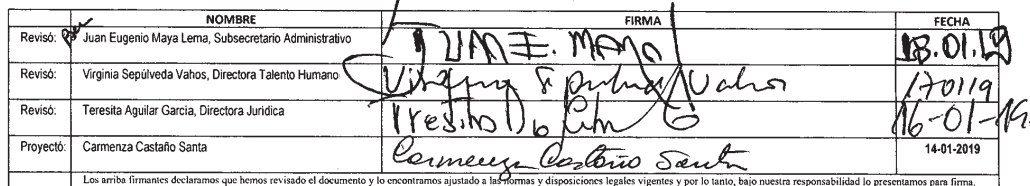 NOMBRE FIRMA FECHA
Revisó: Juan Eugenio Maya Lema, Subsecretario Administrativo JUAN E. MAYA 18.01.19
Revisó: Virginia Sepúlveda Vahos, Directora Talento Humano Virginia Sepulveda Vahos 170119
Revisó: Teresita Aguilar Garcia, Directora Jurídica 16-01-19.
Proyectó: Carmenza Castaño Santa Carmenza Castaño Santa 14-01-2019
Los arriba firmantes declaramos que hemos revisado el documento y lo encontramos ajustado a las normas y disposiciones legales vigentes y por lo tanto, bajo nuestra responsabilidad lo presentamos para firma.